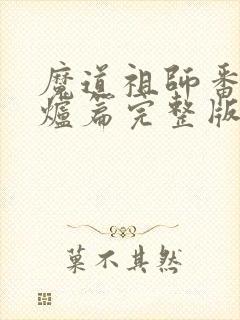 魔道祖師番
爐篇完整版
菓不其然